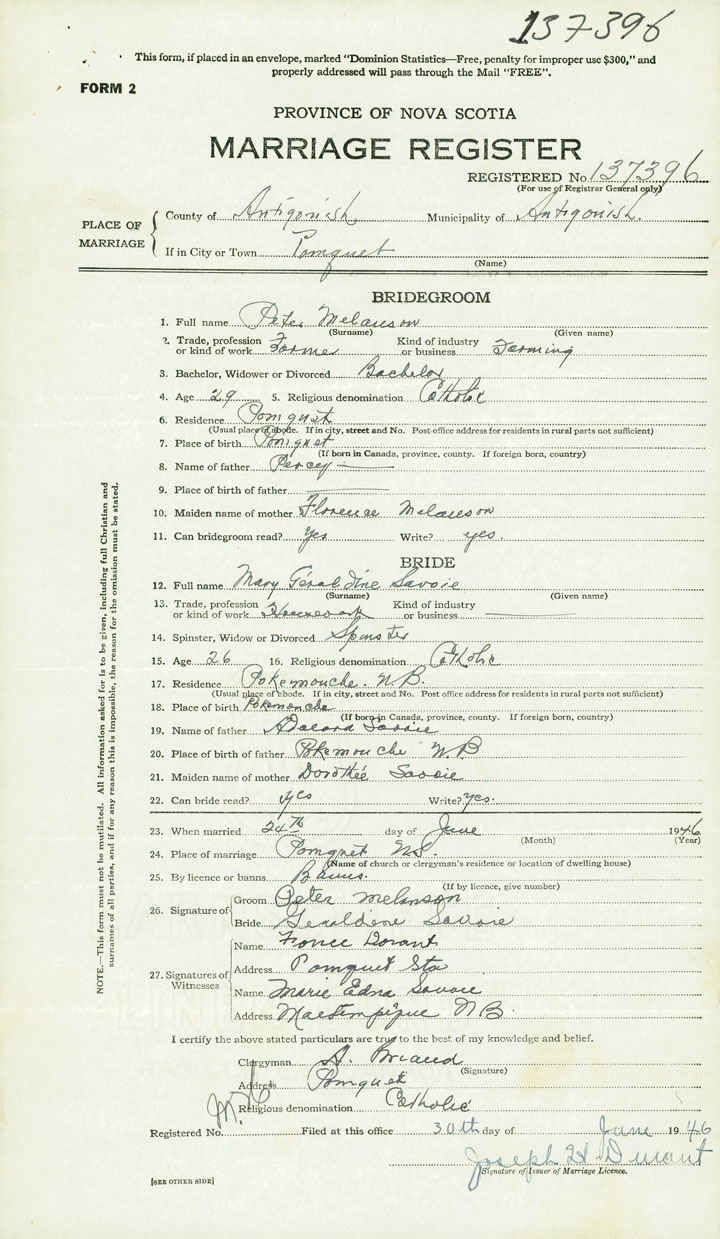 137396
This form, if placed in an envelope, marked "Dominion Statistics—Free, penalty for improper use $300," and
properly addressed will pass through the Mail "FREE".
FORM 2
PROVINCE OF NOVA SCOTIA
MARRIAGE REGISTER
REGISTERED No. 137396
(For use of Registrar General only)
PLACE OF MARRIAGE
County of Antigonish Municipality of Antigonish.
If in City or Town Pomquet
(Name)
BRIDEGROOM
1. Full name Peter Melanson
(Surname) (Given name)
2. Trade, profession or kind of work Farmer Kind of industry or business Farming
3. Bachelor, Widower or Divorced Bachelor
4. Age 29 5. Religious denomination Catholic
6. Residence Pomquet
(Usual place of abode. If in city, street and No. Post office address for residents in rural parts not sufficient)
7. Place of birth Pomquet
(If born in Canada, province, county. If foreign born, country)
8. Name of father Percy
9. Place of birth of father
10. Maiden name of mother Florence Melanson
11. Can bridegroom read? Yes Write? yes.
BRIDE
12. Full name Mary Géraldine Savoie
(Surname) (Given name)
13. Trade, profession or kind of work Housework Kind of industry or business
14. Spinster, Widow or Divorced Spinster
15. Age 26 16. Religious denomination Catholic
17. Residence Pokemouche. N.B.
(Usual place of abode. If in city, street and No. Post office address for residents in rural parts not sufficient)
18. Place of birth Pokemouche
(If born in Canada, province, county. If foreign born, country)
19. Name of father Savoie
20. Place of birth of father Pokemouche N.B
21. Maiden name of mother Dorothée Savoie
22. Can bride read? yes Write? yes.
23. When married 24th day of June 1946
(Month) (Year)
24. Place of marriage Pomquet N.S.
(Name of church or clergyman's residence or location of dwelling house)
25. By licence or banns Banns.
(If by licence, give number)
26. Signature of
Groom Peter Melanson
Bride Geraldine Savoie
27. Signatures of Witnesses
Name
Address Pomquet Sta
Name Marie Edna Savoie
Address N B.
I certify the above stated particulars are true to the best of my knowledge and belief.
Clergyman A. Briand
(Signature)
Address Pomquet
Religious denomination Catholic
Registered No. Filed at this office 30th day of June 1946
Joseph H Durant
Signature of Issuer of Marriage Licence.
[SEE OTHER SIDE]
NOTE.—This form must not be mutilated. All information asked for is to be given, including full Christian and
surnames of all parties, and if for any reason this is impossible, the reason for the omission must be stated.